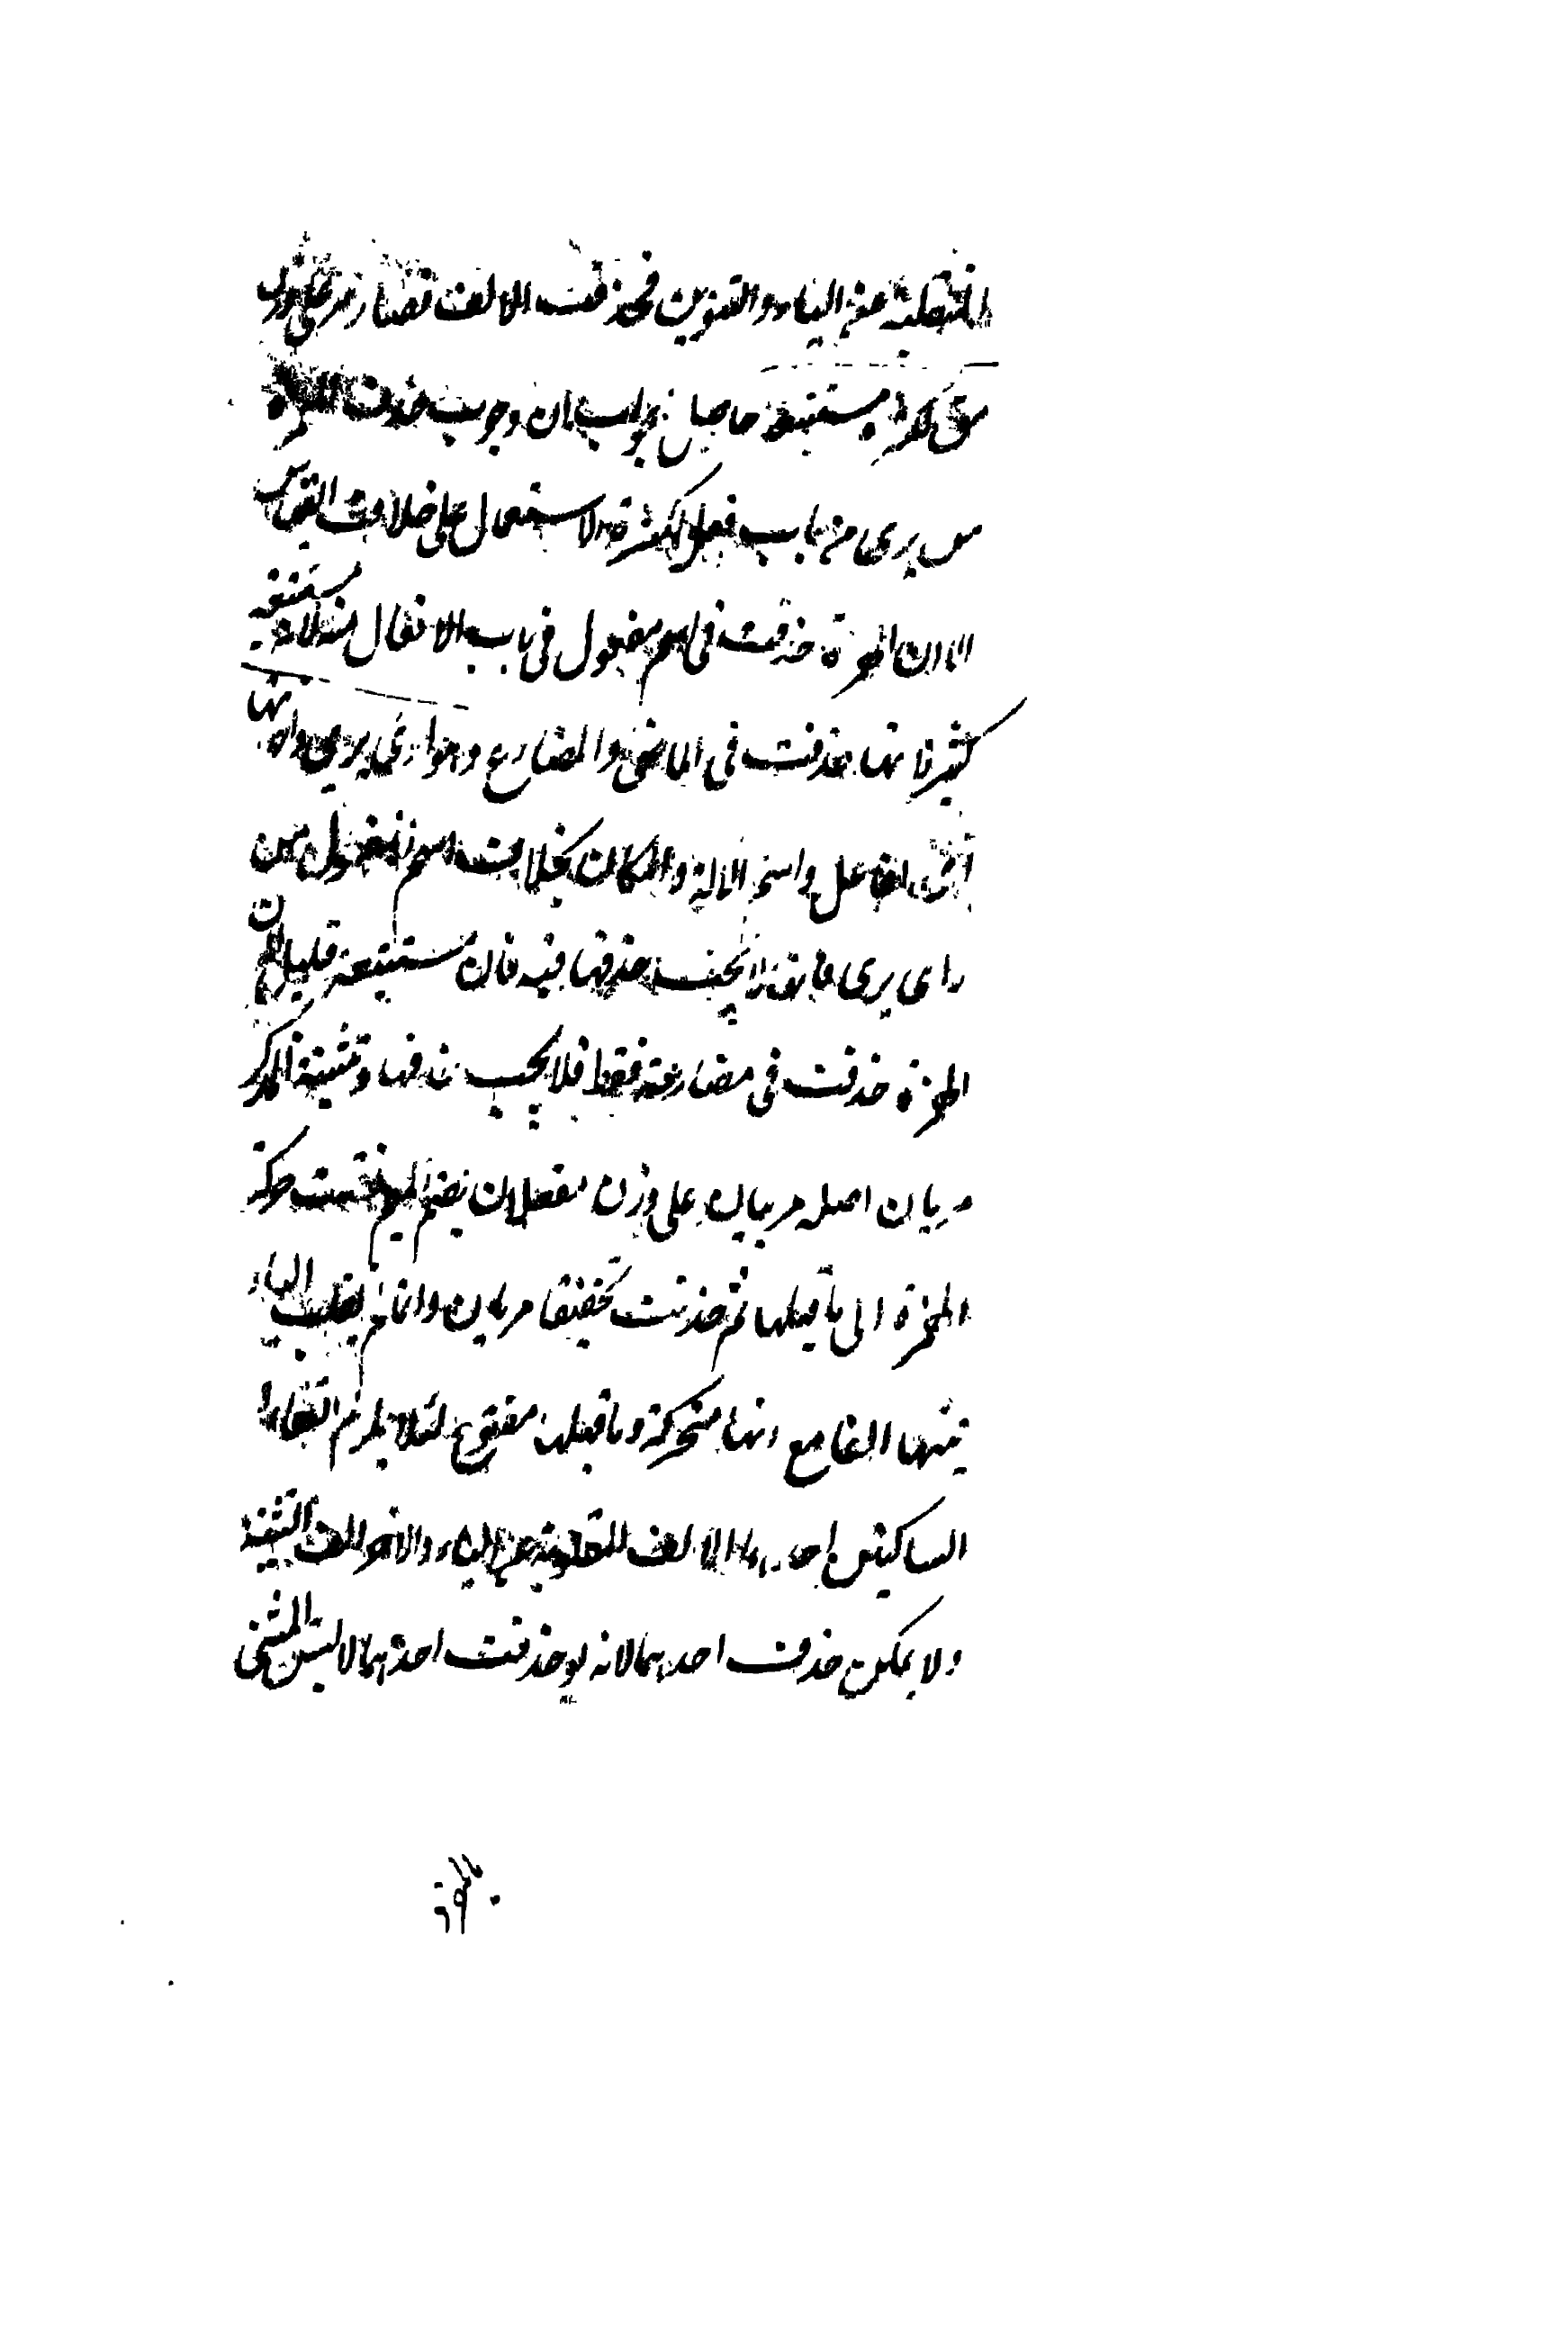 المنقلبة عن الياء والتنوين فحذفت الالف فصار مرى على وزن
مستتبعة حاصل الجواب ان وجوب حذف الهمزة
من يرى من باب فعل لكثرة الاستعمال على خلاف القياس
الا ان الهمزة حذفت فى اسم مفعول فى باب الافعال مستتبعة
كثير لانها حذفت فى الماضى والمضارع وهو ارى يرى واخواتها
الفاعل واسم الالة والمكان بخلاف اسم المفعول من
راى يرى فانه لا يجب حذفها فيه فان مستتبعة قليل لان
الهمزة حذفت فى مضارعه فقط فلا يجب حذفها وتثنية المذكر
مريان اصله مريان على وزن مفعلان بضم الميم نقلت حركة
الهمزة الى ما قبلها ثم حذفت تخفيفا مريان وانما لم يقلب الياء
فيها الفا مع انها متحركة وما قبلها مفتوح لئلا يلزم التقاء
الساكنين احدهما الالف المقلوبة عن الياء والاخر الف التثنية
ولا يمكن حذف احدهما لانه لو حذفت احدهما لا لتبس المثنى